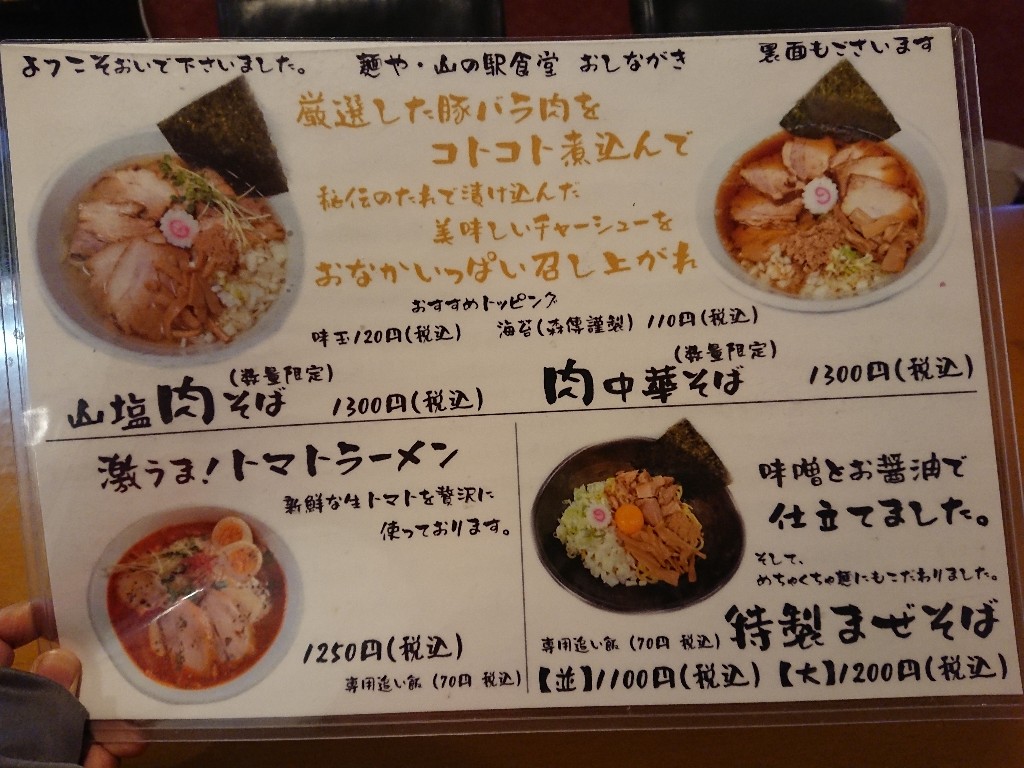 ようこそおいで下さいました。
麺や・山の駅食堂 おしながき
裏面もございます
厳選した豚バラ肉を
コトコト煮込んで
秘伝のたれで漬け込んだ
美味しいチャーシューを
おなかいっぱい召し上がれ
おすすめトッピング
味玉120円(税込) 海苔(森傳謹製) 110円(税込)
(数量限定)
山塩肉そば 1300円(税込)
(数量限定)
肉中華そば 1300円(税込)
激うま!トマトラーメン
新鮮な生トマトを贅沢に
使っております。
1250円(税込)
専用追い飯 (70円 税込)
味噌とお醤油で
仕立てました。
そして、
めちゃくちゃ麺にもこだわりました。
特製まぜそば
専用追い飯 (70円 税込)
【並】1100円(税込) 【大】1200円(税込)